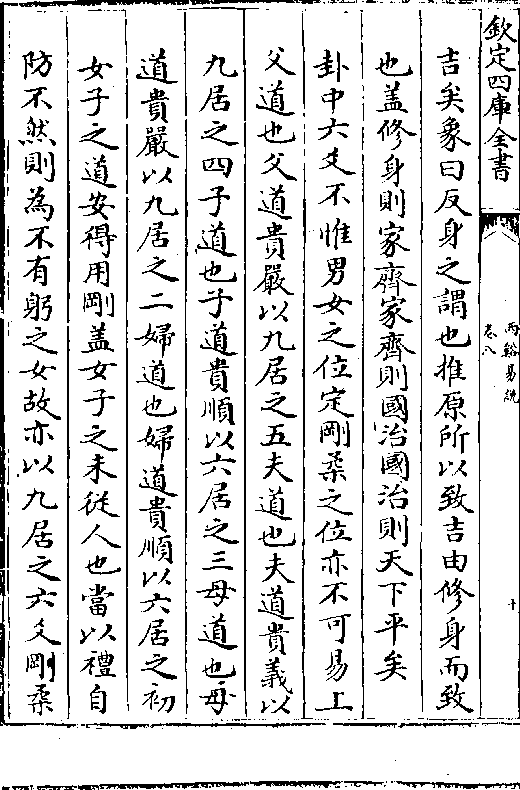 欽定四庫全書
西谿易說
卷八
十
吉矣象曰反身之謂也推原所以致吉由修身而致
也盖修身則家齊家齊則國治國治則天下平矣
卦中六爻不惟男女之位定剛柔之位亦不可易上
父道也父道貴嚴以九居之五夫道也夫道貴義以
九居之四子道也子道貴順以六居之三母道也母
道貴嚴以九居之二婦道也婦道貴順以六居之初
女子之道安得用剛盖女子之未従人也當以禮自
防不然則為不有躬之女故亦以九居之六爻剛柔